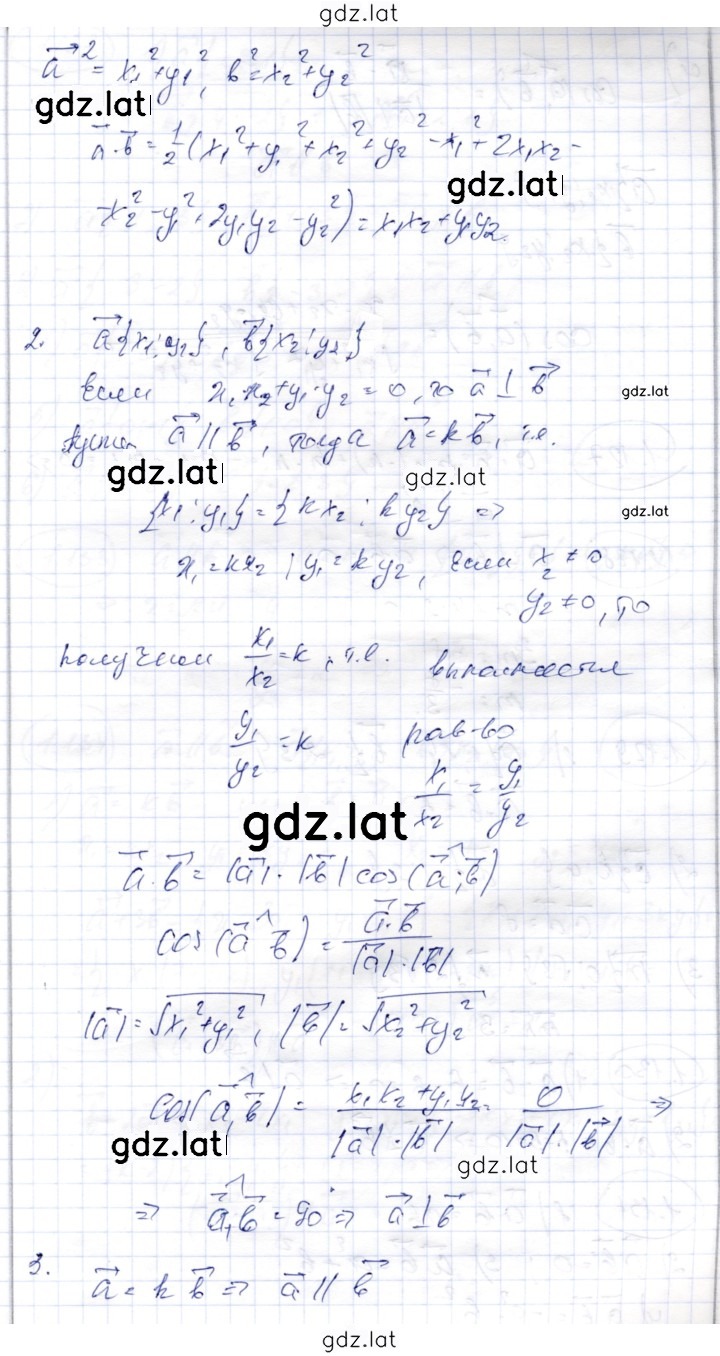 gdz.lat
a⃗² = x₁² + y₁², b² = x₂² + y₂²
gdz.lat
a⃗·b⃗ = 1/2 (x₁² + y₁² + x₂² + y₂² - x₁² + 2x₁x₂ -
gdz.lat
- x₂² - y₁² + 2y₁y₂ - y₂²) = x₁x₂ + y₁y₂.
2. a⃗{x₁; y₁}, b⃗{x₂; y₂}
Если x₁·x₂ + y₁·y₂ = 0, то a⃗ ⊥ b⃗
gdz.lat
Пусть a⃗ || b⃗, тогда a⃗ = k b⃗, т.е.
gdz.lat gdz.lat
{x₁; y₁} = {kx₂; ky₂} =>
gdz.lat
x₁ = kx₂; y₁ = ky₂, если x₂ ≠ 0
y₂ ≠ 0, то
получаем x₁/x₂ = k, т.е. выполняется
y₁/y₂ = k рав-во
x₁/x₂ = y₁/y₂
gdz.lat
a⃗·b⃗ = |a⃗|·|b⃗| cos(a⃗;^b⃗)
cos(a⃗^b⃗) = a⃗·b⃗ / |a⃗|·|b⃗|
|a⃗| = √x₁² + y₁², |b⃗| = √x₂² + y₂²
cos(a⃗,^b⃗) = x₁x₂ + y₁y₂ / |a⃗|·|b⃗| = 0 / |a⃗|·|b⃗| =>
gdz.lat gdz.lat
=> a⃗,^b⃗ = 90° => a⃗ ⊥ b⃗
3. a⃗ = k b⃗ => a⃗ || b⃗
gdz.lat